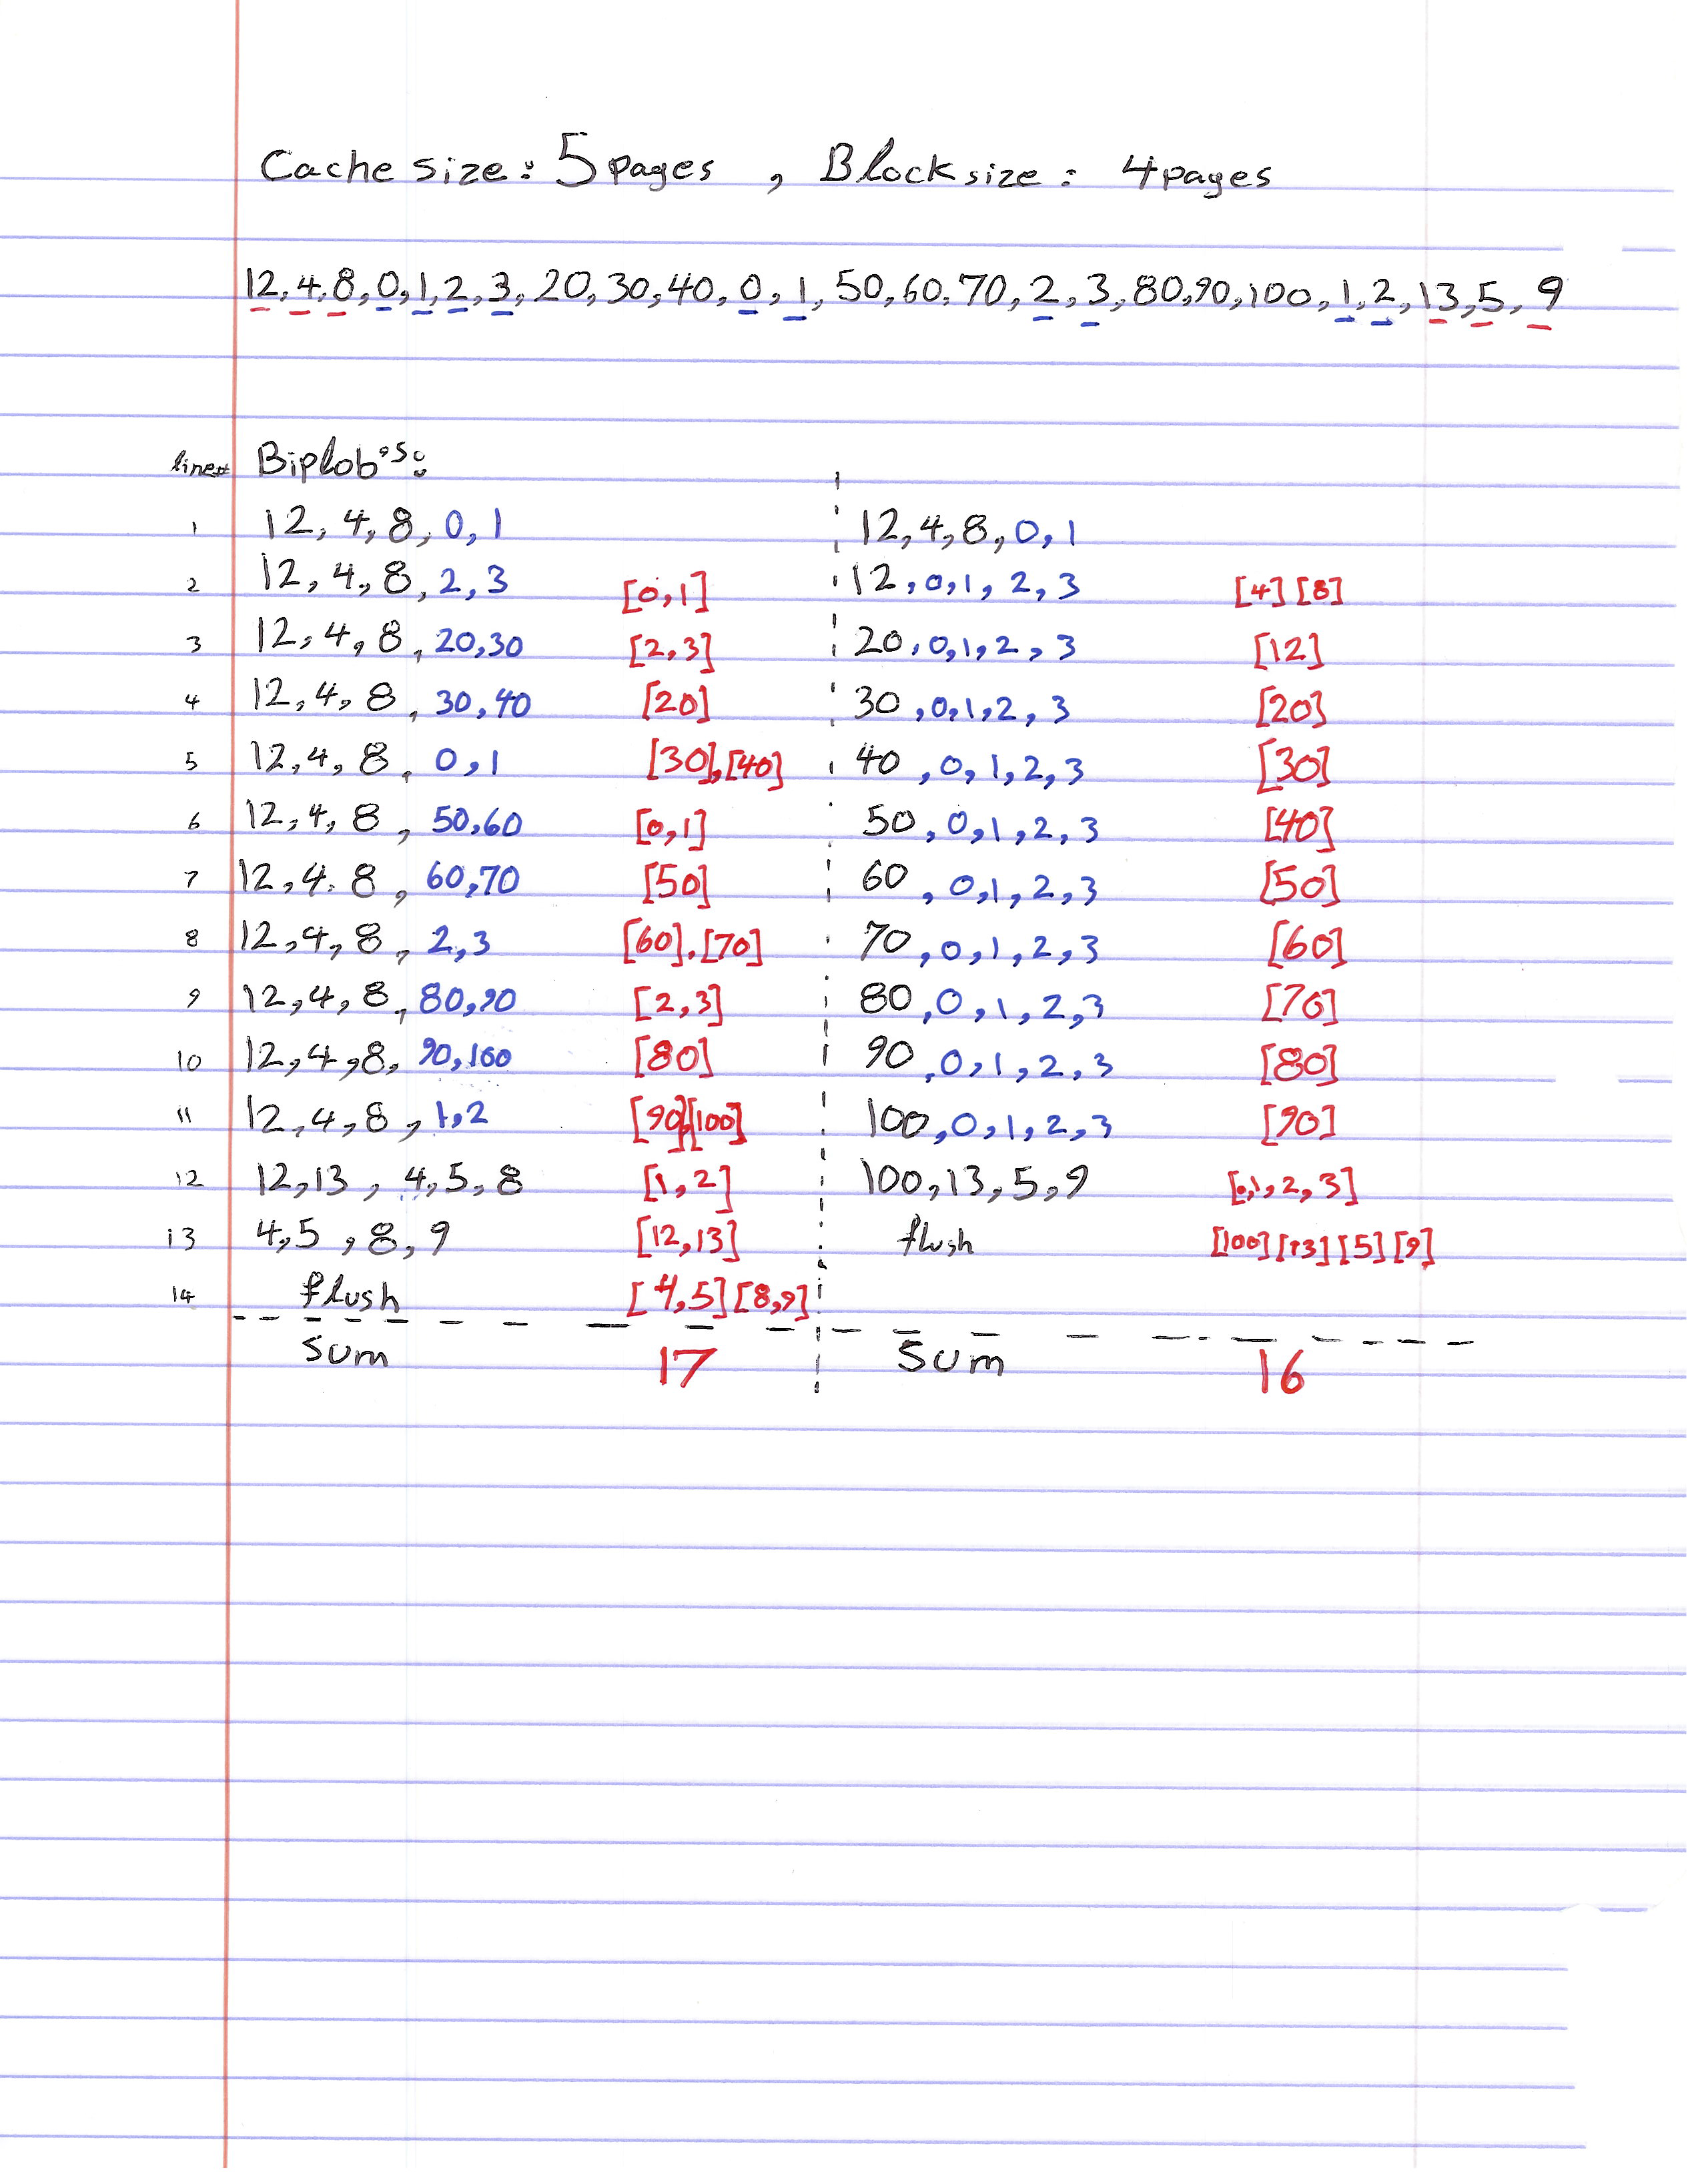 Cache size: 5 pages , Block size: 4 pages
12, 4, 8, 0, 1, 2, 3, 20, 30, 40, 0, 1, 50, 60, 70, 2, 3, 80, 90, 100, 1, 2, 13, 5, 9
line# Biplob's:
1 12, 4, 8, 0, 1 12, 4, 8, 0, 1
2 12, 4, 8, 2, 3 [0,1] 12, 0, 1, 2, 3 [4] [8]
3 12, 4, 8, 20,30 [2,3] 20, 0, 1, 2, 3 [12]
4 12, 4, 8, 30,40 [20] 30, 0, 1, 2, 3 [20]
5 12, 4, 8, 0, 1 [30],[40] 40, 0, 1, 2, 3 [30]
6 12, 4, 8, 50,60 [0,1] 50, 0, 1, 2, 3 [40]
7 12, 4, 8, 60,70 [50] 60, 0, 1, 2, 3 [50]
8 12, 4, 8, 2, 3 [60],[70] 70, 0, 1, 2, 3 [60]
9 12, 4, 8, 80,90 [2,3] 80, 0, 1, 2, 3 [70]
10 12, 4, 8, 90,100 [80] 90, 0, 1, 2, 3 [80]
11 12, 4, 8, 1, 2 [90][100] 100, 0, 1, 2, 3 [90]
12 12, 13, 4, 5, 8 [1,2] 100, 13, 5, 9 [0,1,2,3]
13 4, 5, 8, 9 [12,13] flush [100] [13] [5] [9]
14 flush [4,5] [8,9]
Sum 17 Sum 16